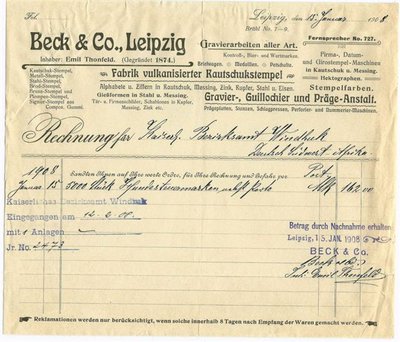 Tel.
Leipzig, den 15. Januar 1908.
Brühl No. 7–9.
Fernsprecher No. 727.
Beck & Co., Leipzig
Inhaber: Emil Thonfeld. (Gegründet 1874.)
Gravierarbeiten aller Art.
Kontroll-, Bier- und Wertmarken.
Briefwagen. Medaillen. Petschafte.
Firma-, Datum-
und Girostempel-Maschinen
in Kautschuk u. Messing.
Hektographen.
Kautschuk-Stempel,
Metall-Stempel,
Stahl-Stempel,
Brenn-Stempel,
Plomben-Stempel,
Signier-Stempel aus
Compos. Gummi.
Fabrik vulkanisierter Kautschukstempel
Alphabete u. Ziffern in Kautschuk, Messing, Zink, Kupfer, Stahl u. Eisen.
Giessformen in Stahl u. Messing.
Tür- u. Firmenschilder, Schablonen in Kupfer,
Messing, Zink etc.
Stempelfarben.
Gravier-, Guillochier und Präge-Anstalt.
Prägeplatten, Stanzen, Schlagpressen, Perforier- und Nummerier-Maschinen.
Rechnung für Kaiserl. Bezirksamt Windhuk
Deutsch Südwest Afrika
1908
Sandten Ihnen auf Ihre werte Order, für Ihre Rechnung und Gefahr per Post
Januar 15 5000 Stück Hundesteuermarken nebst Porto Mk 162.00
Kaiserliches Bezirksamt Windhuk
Eingegangen am 12.6.08.
mit 1 Anlagen
Jr. No. 2473
Betrag durch Nachnahme erhalten
Leipzig, 15. JAN. 1908
BECK & Co.
Beck & Co.
Inh. Emil Thonfeld
Reklamationen werden nur berücksichtigt, wenn solche innerhalb 8 Tagen nach Empfang der Waren gemacht werden.